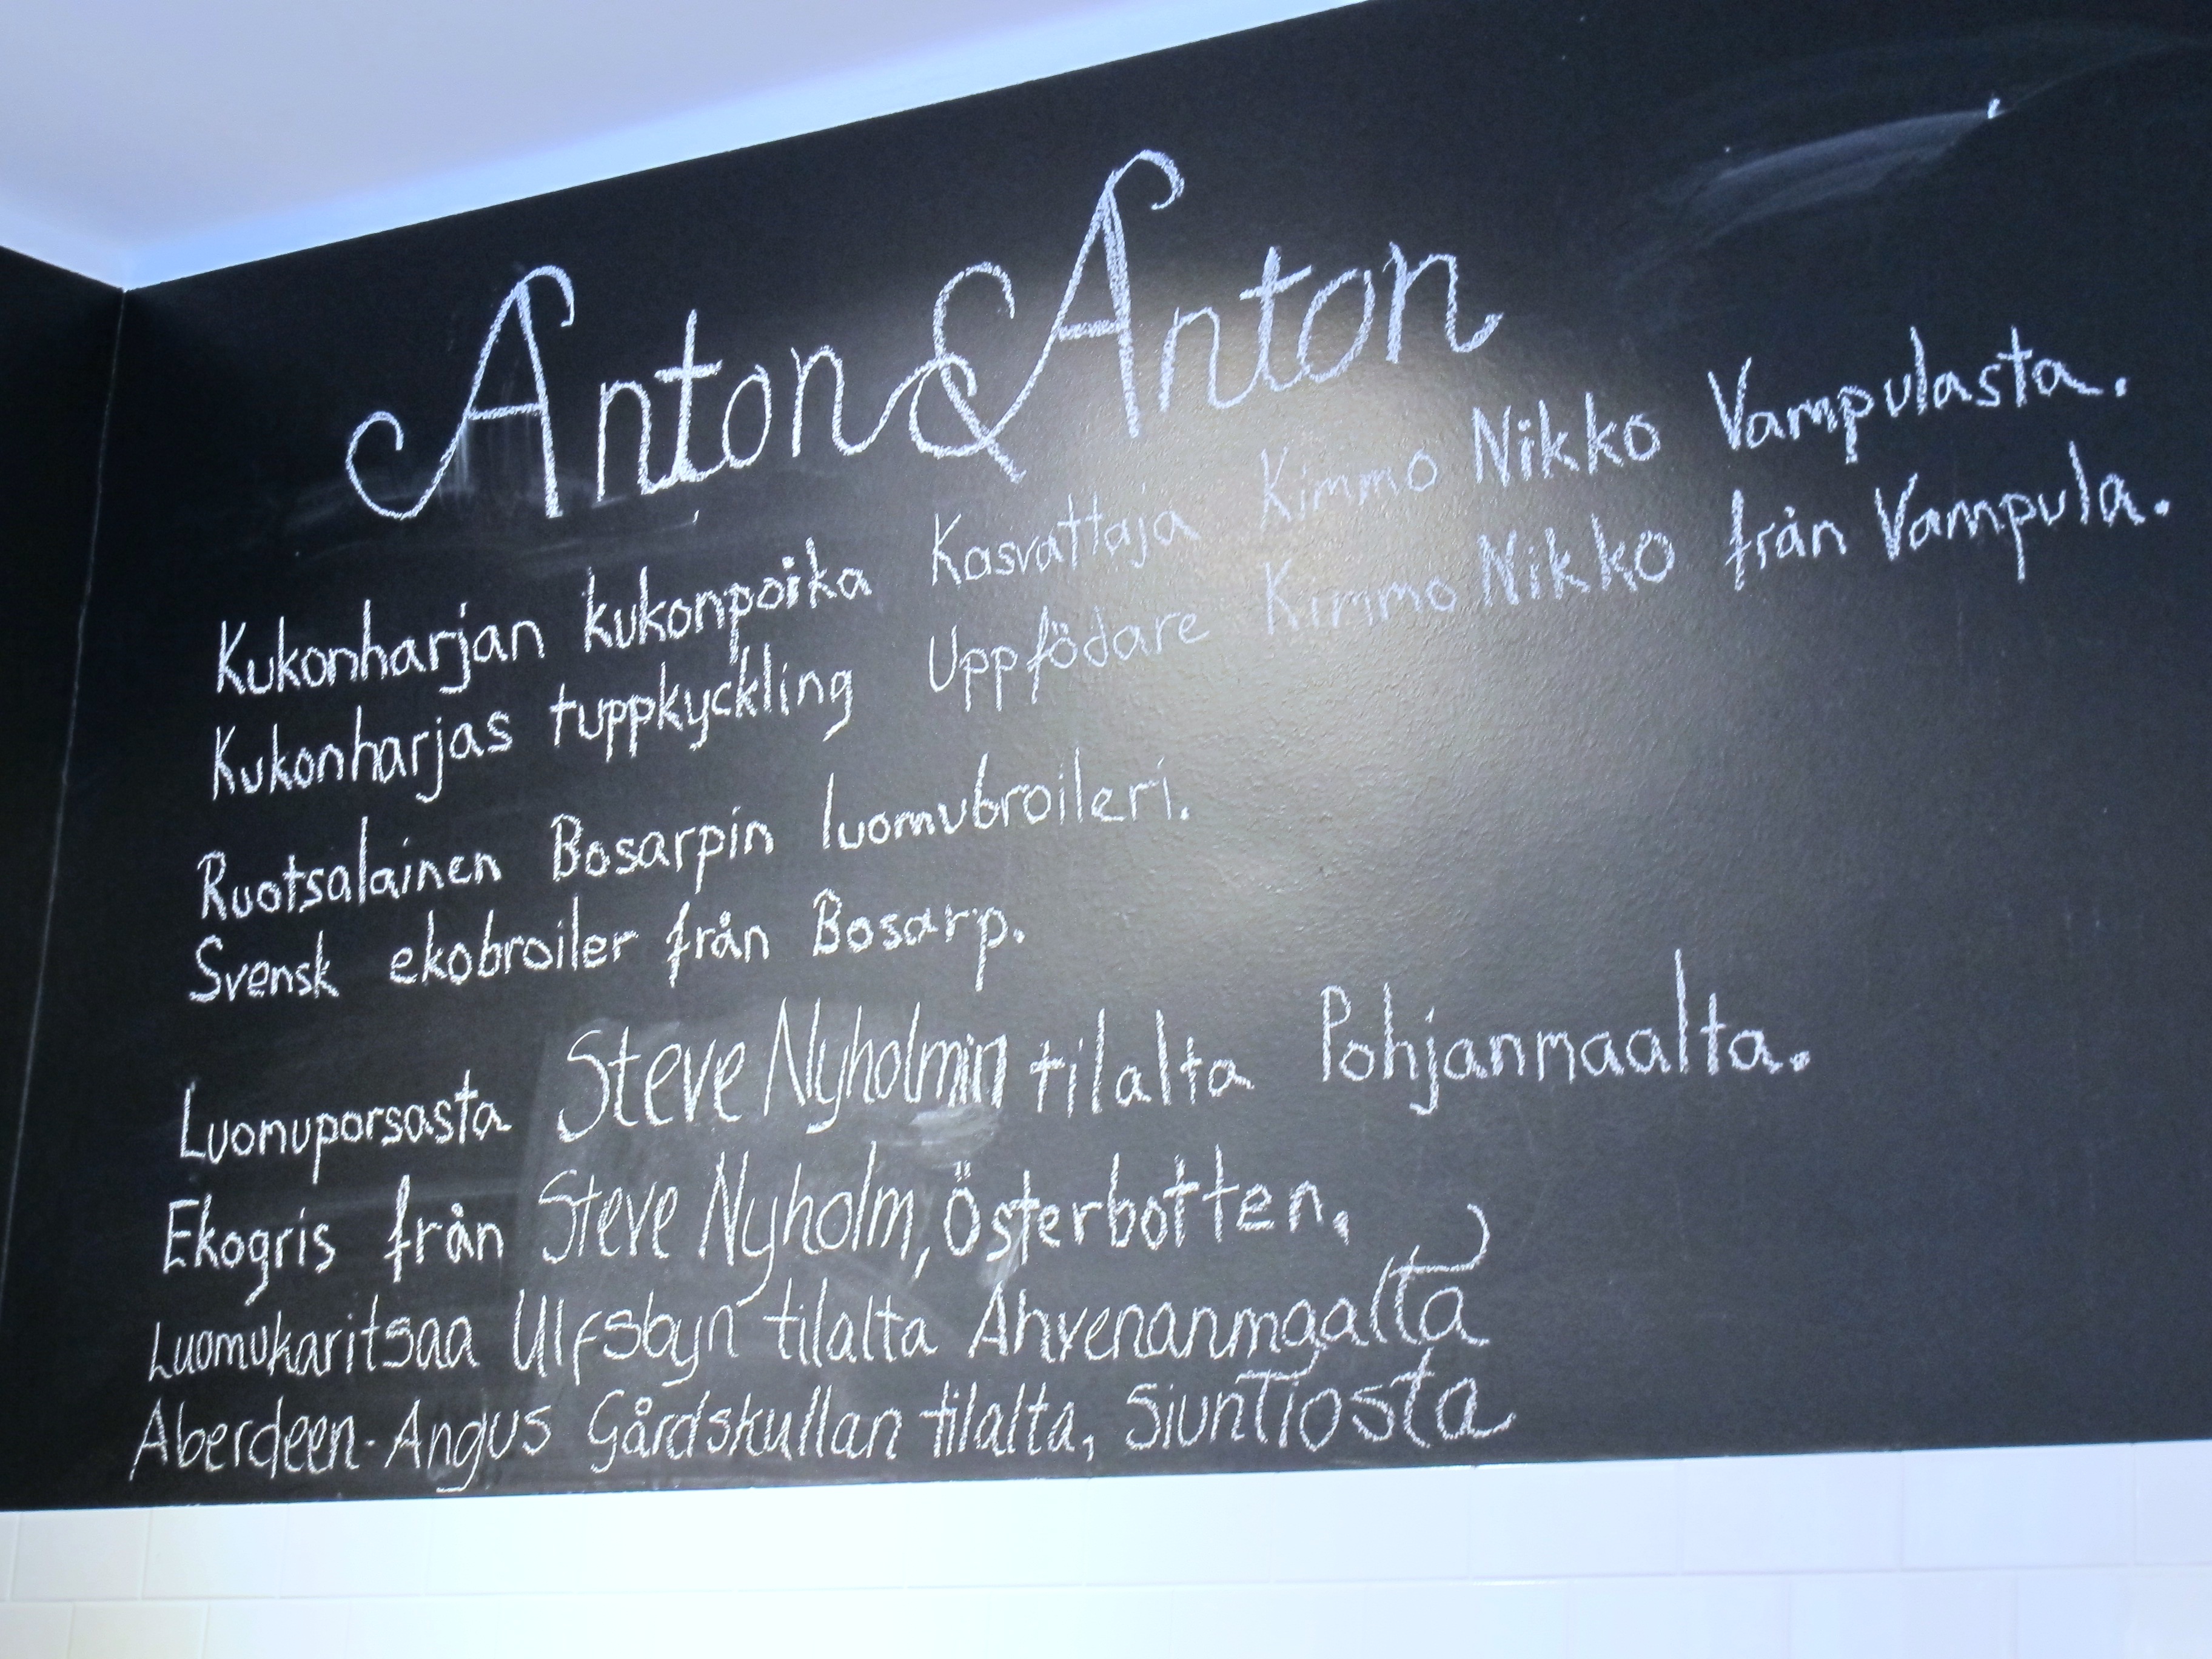 Anton & Anton
Kukonharjan kukonpoika Kasvattaja Kimmo Nikko Vampulasta.
Kukonharjas tuppkyckling Uppfödare Kimmo Nikko från Vampula.
Ruotsalainen Bosarpin luomubroileri.
Svensk ekobroiler från Bosarp.
Luomuporsasta Steve Nyholmin tilalta Pohjanmaalta.
Ekogris från Steve Nyholm, Österbotten.
Luomukaritsaa Ulfsbyn tilalta Ahvenanmaalta
Aberdeen-Angus Gårdskullan tilalta, Siuntiosta